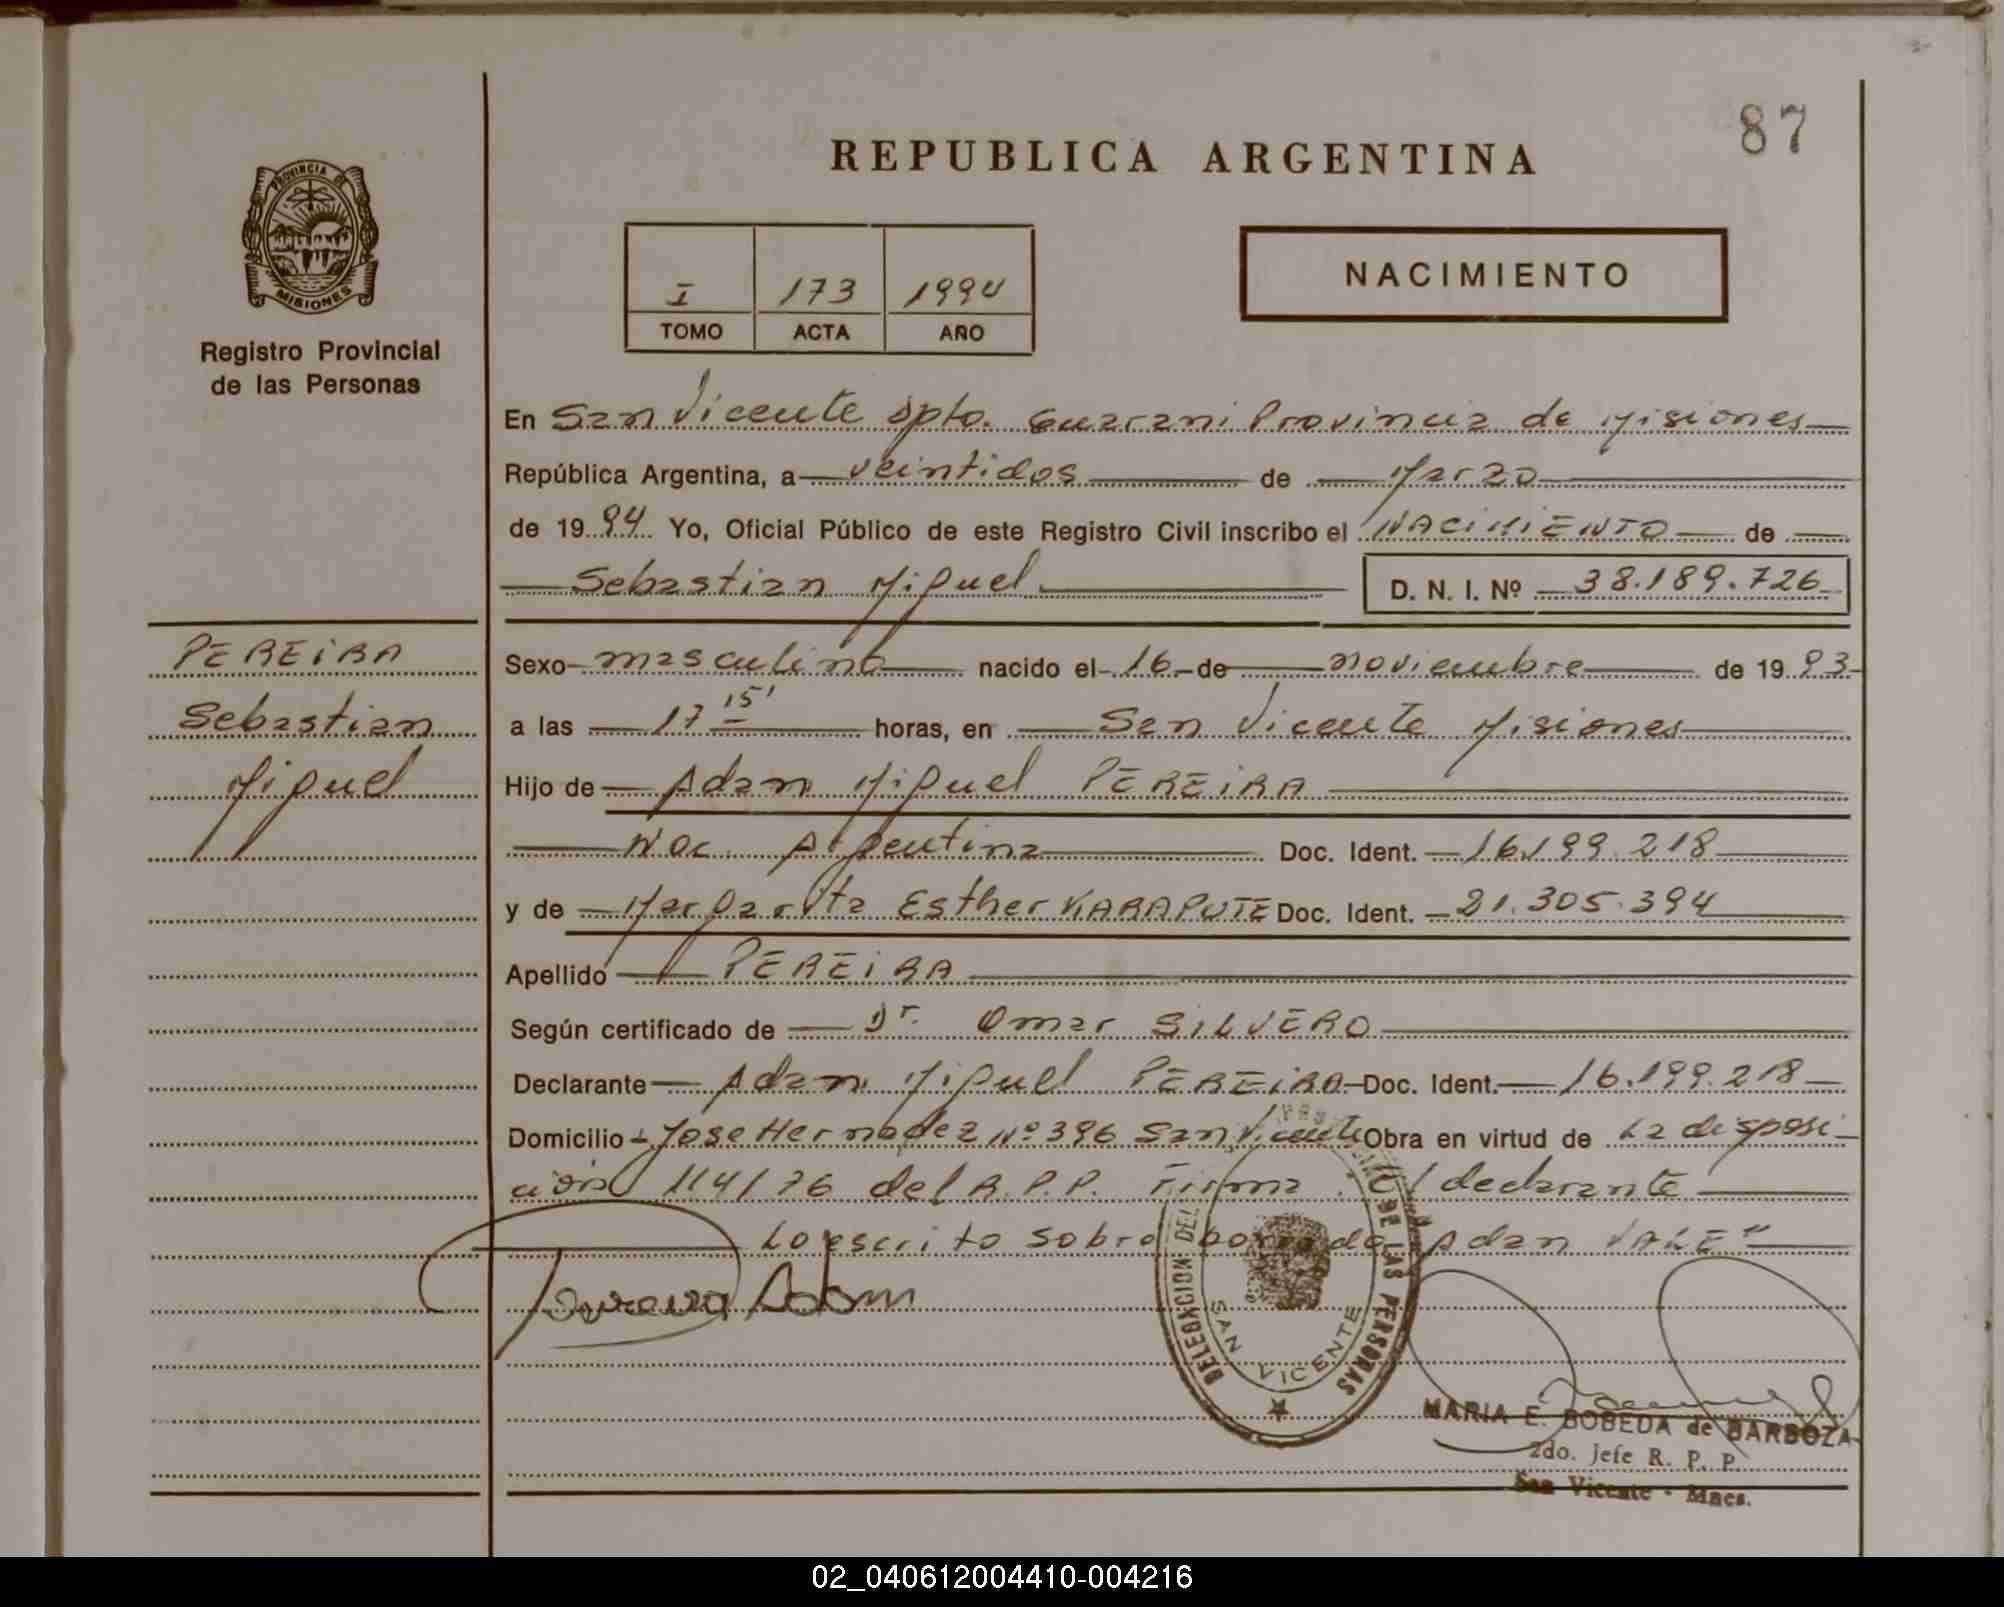 87
REPUBLICA ARGENTINA
PROVINCIA DE
MISIONES
Registro Provincial
de las Personas
I 173 1994
TOMO ACTA AÑO
NACIMIENTO
En San Vicente Dpto. Guarani Provincia de Misiones
República Argentina, a veintidos de Marzo
de 1994 Yo, Oficial Público de este Registro Civil inscribo el NACIMIENTO de
Sebastian Miguel D. N. I. Nº 38.189.726
PEREIRA
Sebastian
Miguel
Sexo masculino nacido el 16 de noviembre de 1993
a las 17 15' horas, en San Vicente Misiones
Hijo de Adan Miguel PEREIRA
Nac. Argentina Doc. Ident. 16.199.218
y de Margarita Esther KARAPUTE Doc. Ident. 21.305.394
Apellido PEREIRA
Según certificado de Dr. Omar SILVERO
Declarante Adan Miguel PEREIRA Doc. Ident. 16.199.218
Domicilio Jose Hernadez Nº 396 San Vicente Obra en virtud de La disposi-
ción 114/76 del R.P.P. Firma: El declarante
Lo escrito sobre borrado Adan VALE"
Pereira Adan
DELEGACION DEL DE LAS PERSONAS
SAN VICENTE
MARIA E. BOBEDA de BARBOZA
2do. Jefe R. P. P.
San Vicente - Mnes.
02_040612004410-004216